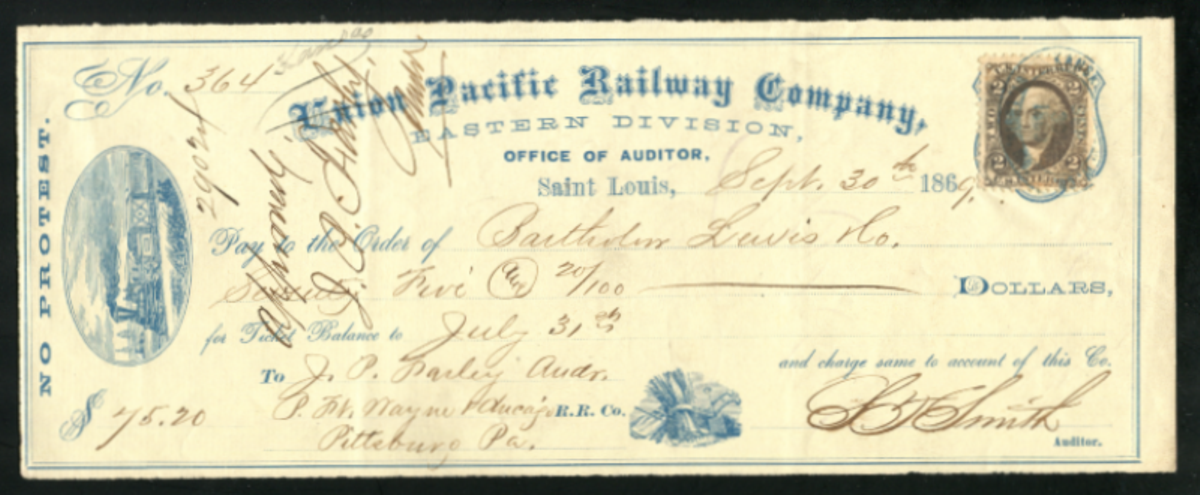 NO PROTEST.
No. 364
Kansas
Union Pacific Railway Company,
EASTERN DIVISION,
OFFICE OF AUDITOR,
Saint Louis, Sept. 30th 1869.
Pay to the Order of Bartholow Lewis & Co.
Seventy Five and 20/100 DOLLARS,
for Ticket Balance to July 31st
and charge same to account of this Co.
To J. P. Farley Audr.
P. Ft. Wayne & Chicago R.R. Co.
Pittsburg Pa.
$ 75.20
Smith
Auditor.
29024
U.S. INTER. REV.
2 2